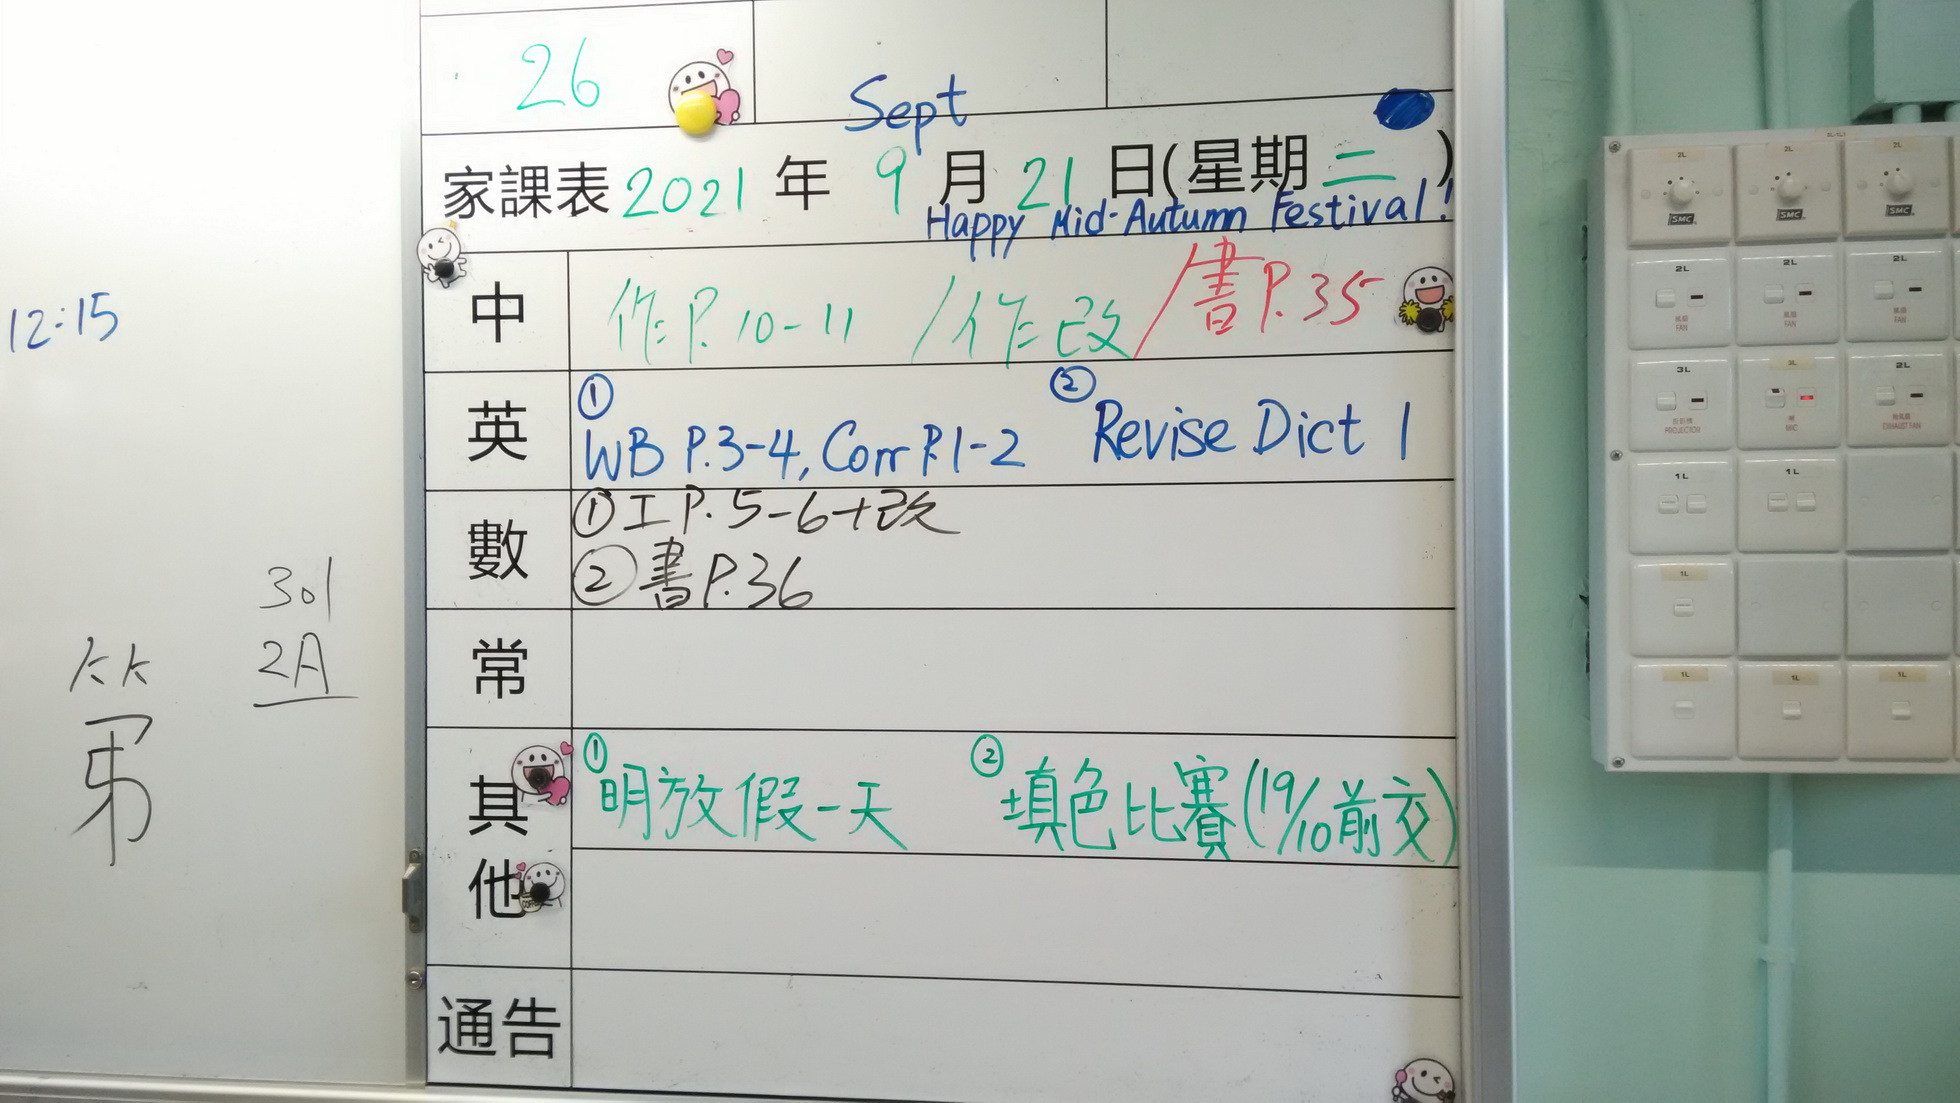 26
Sept
家課表 2021 年 9 月 21 日(星期 二 )
Happy Mid-Autumn Festival!
中 作P.10-11 /作改/書P.35
英 ① WB P.3-4, Corr P.1-2 ② Revise Dict 1
數 ①工P.5-6+改
②書P.36
常
其他 ①明放假一天 ②填色比賽(19/10前交)
通告
12:15
301
2A
2L 2L 2L
SMC SMC SMC
2L 2L 2L
風扇 風扇 風扇
FAN FAN FAN
3L 3L 2L
PROJECTOR MIC EXHAUST FAN
1L 1L
1L
1L 1L 1L